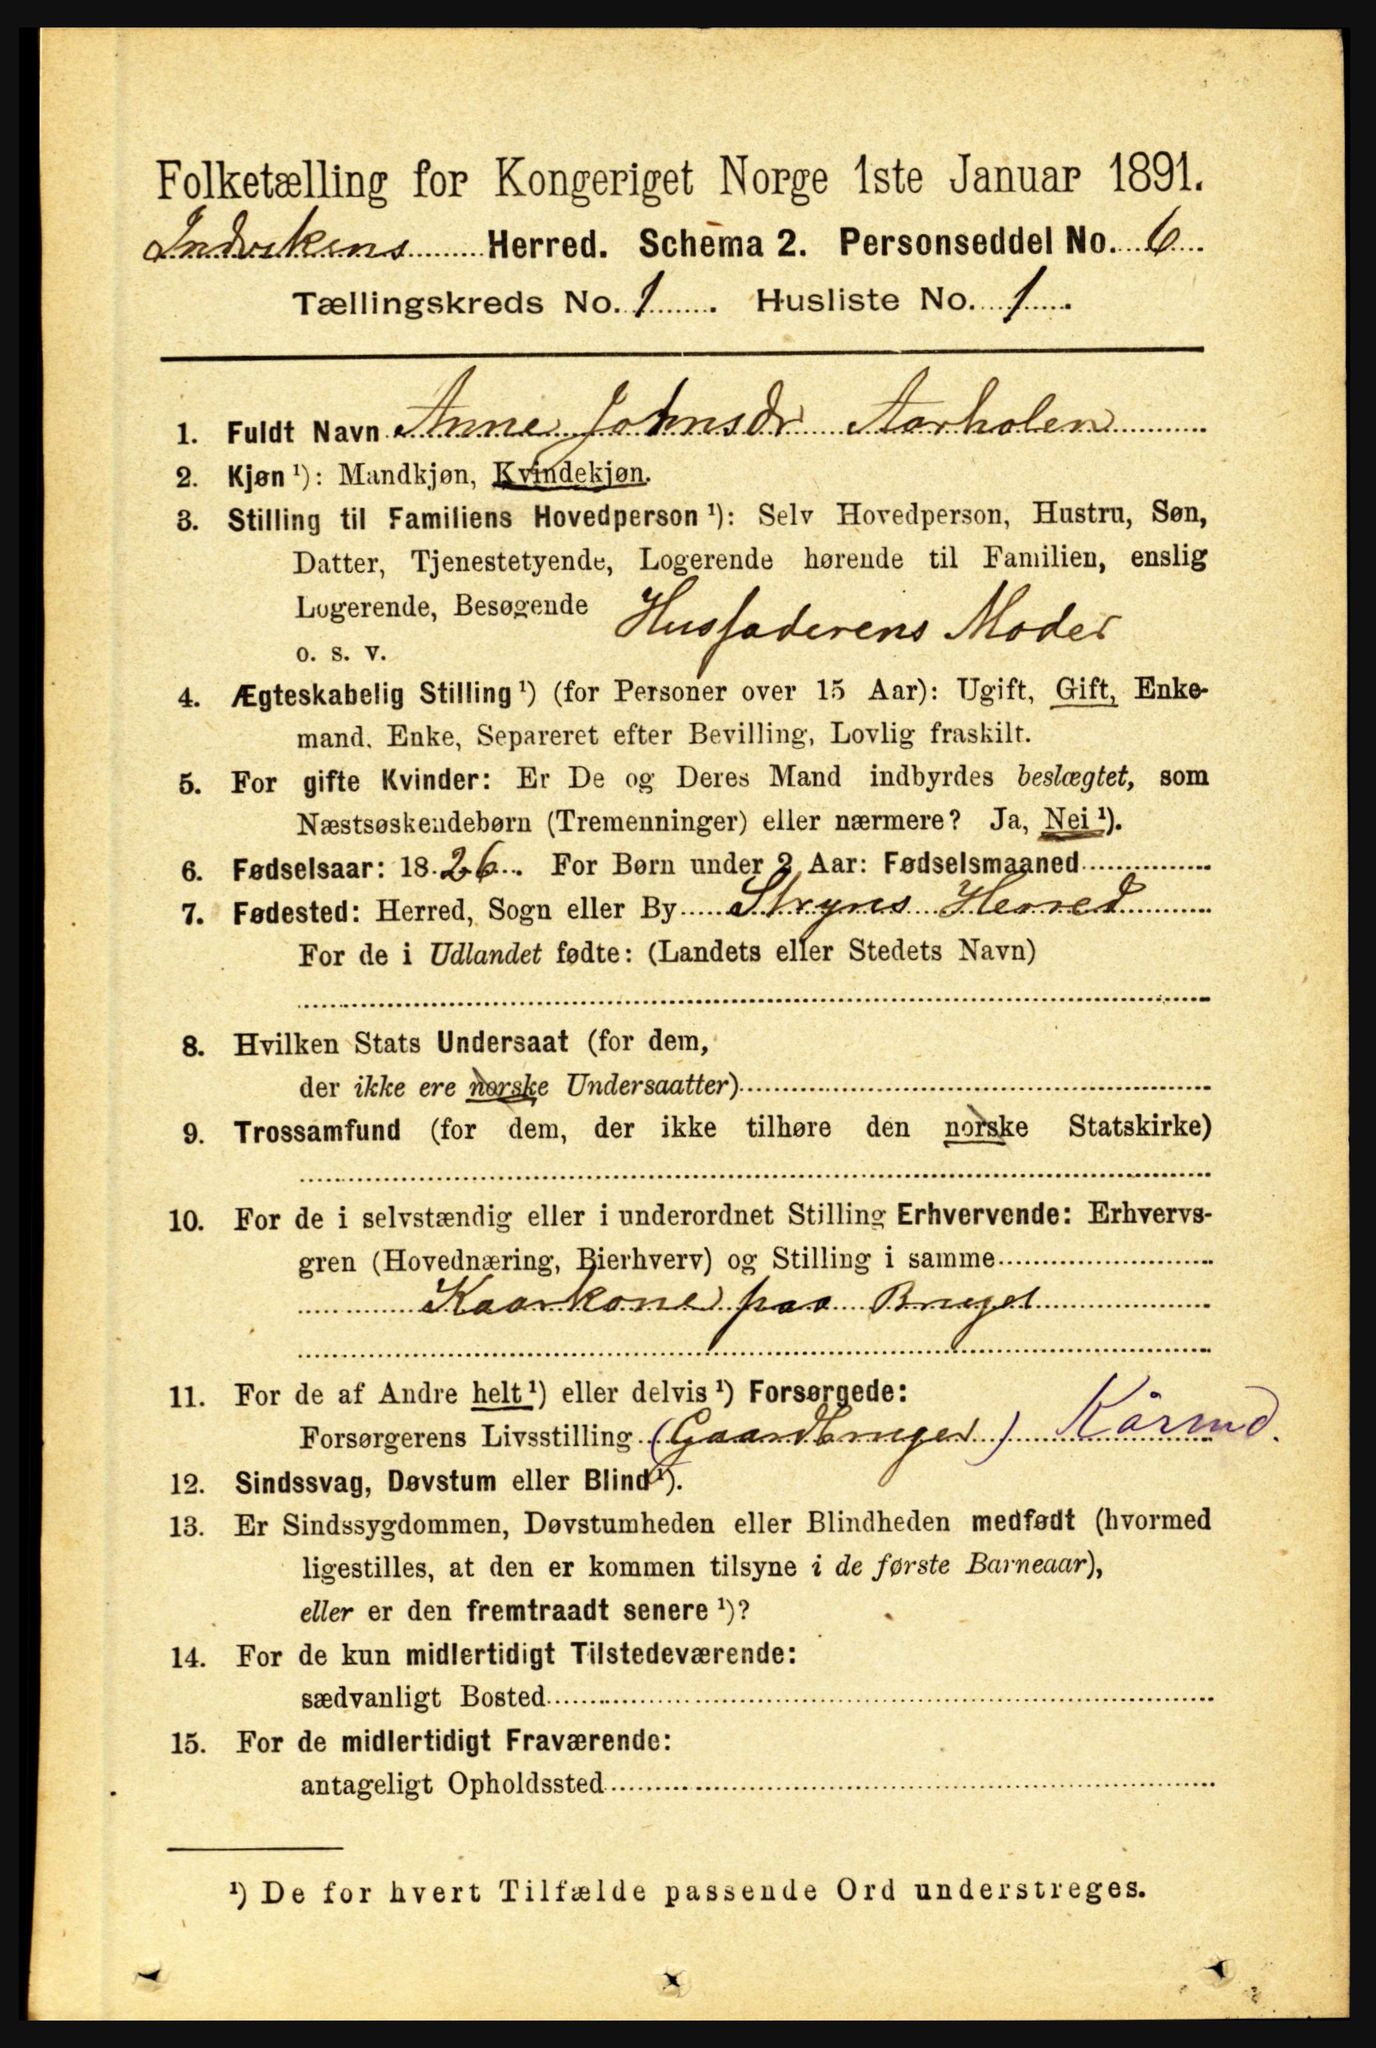 Folketælling for Kongeriget Norge 1ste Januar 1891.
Indvikens Herred. Schema 2. Personseddel No. 6
Tællingskreds No. 1. Husliste No. 1.
1. Fuldt Navn Anne Johnsdr Aarholen
2. Kjøn ¹): Mandkjøn, Kvindekjøn.
3. Stilling til Familiens Hovedperson ¹): Selv Hovedperson, Hustru, Søn,
Datter, Tjenestetyende, Logerende hørende til Familien, enslig
Logerende, Besøgende Husfaderens Moder
o. s. v.
4. Ægteskabelig Stilling ¹) (for Personer over 15 Aar): Ugift, Gift, Enke-
mand, Enke, Separeret efter Bevilling, Lovlig fraskilt.
5. For gifte Kvinder: Er De og Deres Mand indbyrdes beslægtet, som
Næstsøskendebørn (Tremenninger) eller nærmere? Ja, Nei ¹).
6. Fødselsaar: 1826. For Børn under 2 Aar: Fødselsmaaned
7. Fødested: Herred, Sogn eller By Stryns Herred
For de i Udlandet fødte: (Landets eller Stedets Navn)
8. Hvilken Stats Undersaat (for dem,
der ikke ere norske Undersaatter)
9. Trossamfund (for dem, der ikke tilhøre den norske Statskirke)
10. For de i selvstændig eller i underordnet Stilling Erhvervende: Erhvervs-
gren (Hovednæring, Bierhverv) og Stilling i samme
Kaarkone paa Bruget
11. For de af Andre helt ¹) eller delvis ¹) Forsørgede:
Forsørgerens Livsstilling (Gaardbruger) Kårmd.
12. Sindssvag, Døvstum eller Blind ¹).
13. Er Sindssygdommen, Døvstumheden eller Blindheden medfødt (hvormed
ligestilles, at den er kommen tilsyne i de første Barneaar),
eller er den fremtraadt senere ¹)?
14. For de kun midlertidigt Tilstedeværende:
sædvanligt Bosted
15. For de midlertidigt Fraværende:
antageligt Opholdssted
¹) De for hvert Tilfælde passende Ord understreges.